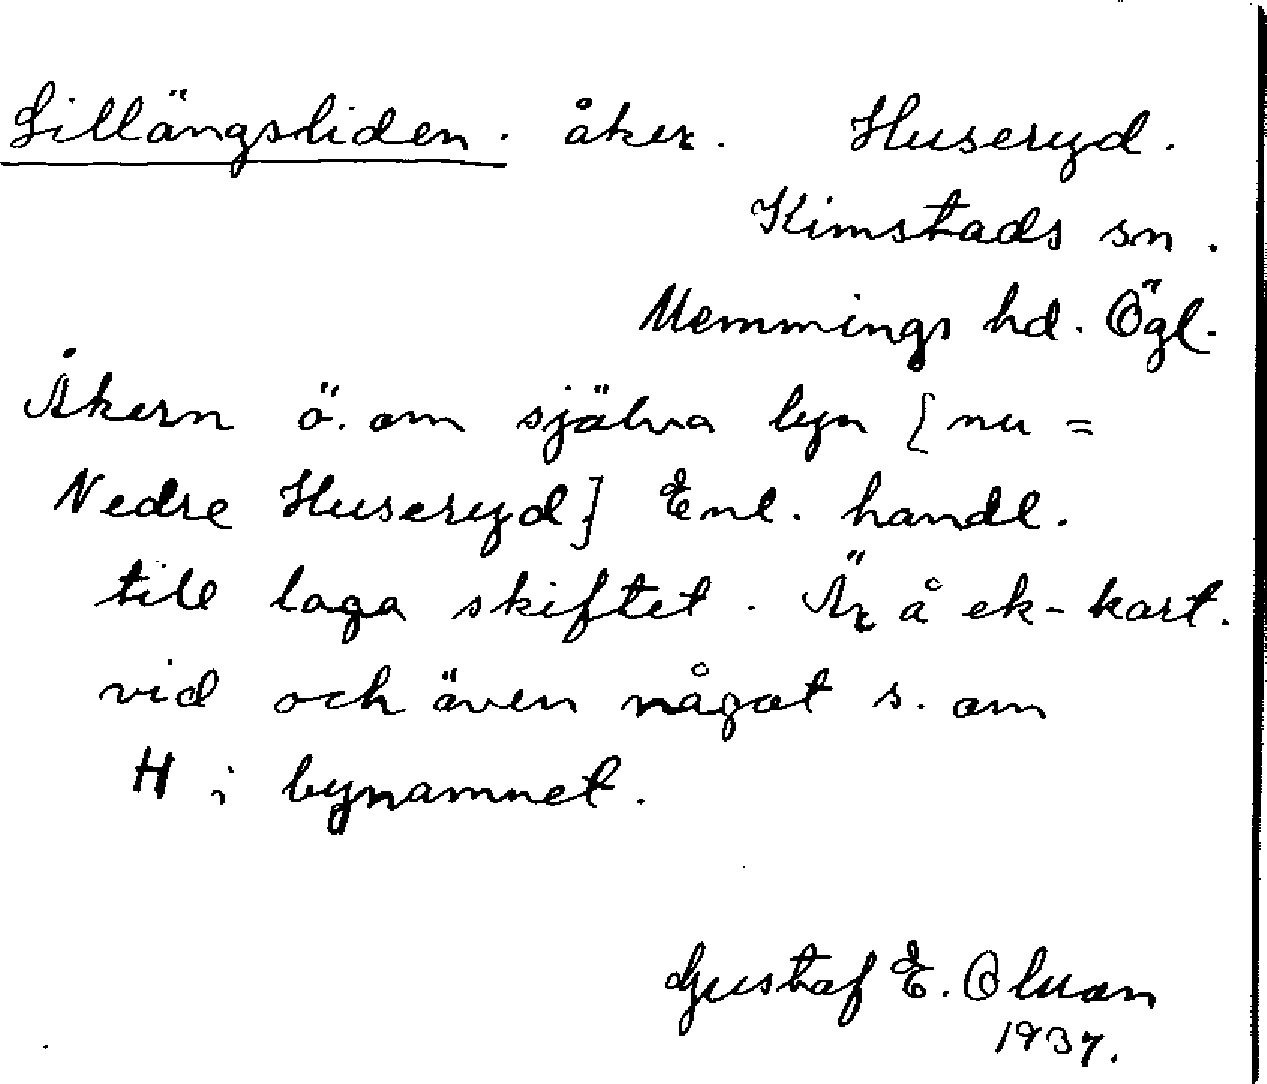 Lillängsliden. åker. Huseryd.
Kimstads sn.
Memmings hd. Ögl.
Åkern ö. om själva byn [nu =
Nedre Huseryd] Enl. handl.
till laga skiftet. Är å ek-kart.
vid och även något s. om
H i bynamnet.
Gustaf E. Olsson
1937.